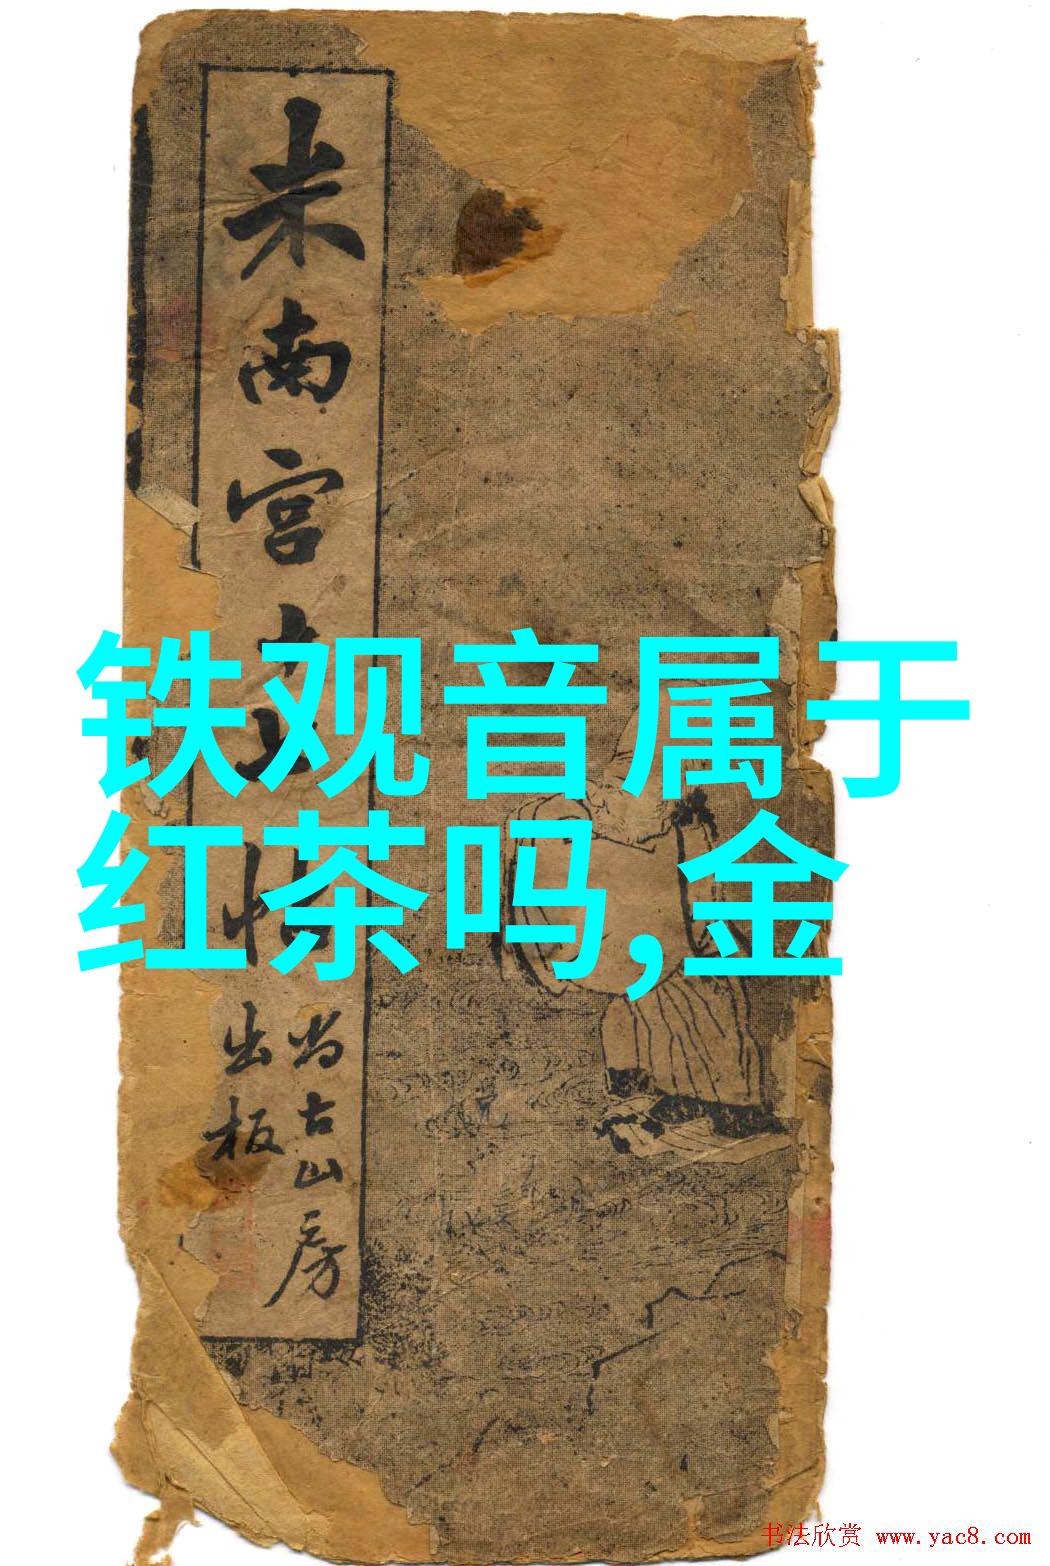 米南宫十七帖
尚古山房
出板
铁观音属于
红茶吗,金
书法欣赏 www.yac8.com